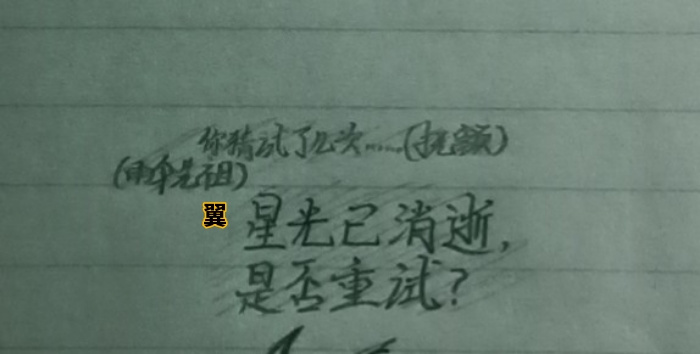 你猜试了几次……(扶额)
先祖)
翼 星光已消逝,
是否重试?